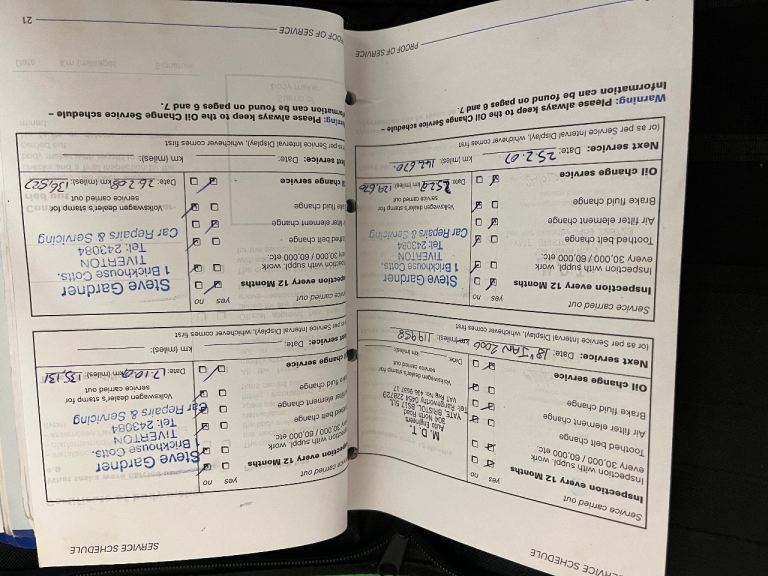 SERVICE SCHEDULE
Service carried out
yes no
Inspection every 12 Months
Inspection with suppl. work
every 30,000 / 60,000 etc.
Toothed belt change
Air filter element change
Brake fluid change
Oil change service
M.D.T.
Auto Engineers
304 North Road
YATE, BRISTOL BS17 5LL
Tel: Rangeworthy 0454 228729
VAT Reg No: 446 9537 17
Volkswagen dealer's stamp for
service carried out
Date: km (miles):
Next service: Date: 18th JAN 2006 km (miles): 119958
(or as per Service Interval Display), whichever comes first
Service carried out
yes no
Inspection every 12 Months
Inspection with suppl. work
every 30,000 / 60,000 etc.
Toothed belt change
Air filter element change
Brake fluid change
Oil change service
Steve Gardner
1 Brickhouse Cotts.
TIVERTON
Tel: 243084
Car Repairs & Servicing
Volkswagen dealer's stamp for
service carried out
Date: km (miles):
Next service: Date: 25.2.07 km (miles): 142,670
(or as per Service Interval Display), whichever comes first
Warning: Please always keep to the Oil Change Service schedule –
Information can be found on pages 6 and 7.
PROOF OF SERVICE
SERVICE SCHEDULE
vice carried out
yes no
pection every 12 Months
pection with suppl. work
ery 30,000 / 60,000 etc.
othed belt change
filter element change
ke fluid change
il change service
Steve Gardner
1 Brickhouse Cotts.
TIVERTON
Tel: 243084
Car Repairs & Servicing
Volkswagen dealer's stamp for
service carried out
Date: 17.10.0 km (miles): 135,131
ext service: Date: km (miles):
as per Service Interval Display), whichever comes first
rvice carried out
yes no
spection every 12 Months
pection with suppl. work
ery 30,000 / 60,000 etc.
othed belt change
filter element change
ake fluid change
il change service
Steve Gardner
1 Brickhouse Cotts.
TIVERTON
Tel: 243084
Car Repairs & Servicing
Volkswagen dealer's stamp for
service carried out
Date: 26.2.08 km (miles): 136,527
ext service: Date: km (miles):
as per Service Interval Display), whichever comes first
rning: Please always keep to the Oil Change Service schedule –
formation can be found on pages 6 and 7.
ROOF OF SERVICE
21